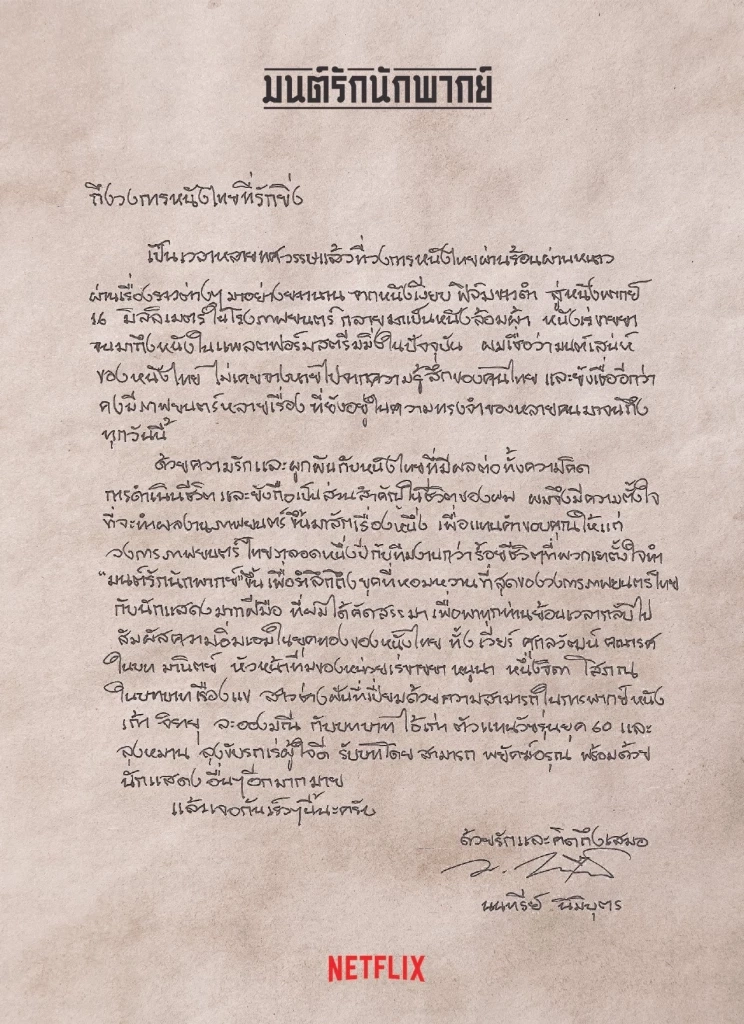 มนต์รักนักพากย์
ถึงวงการหนังไทยที่รักยิ่ง
เป็นเวลาหลายทศวรรษแล้วที่วงการหนังไทยผ่านร้อนผ่านหนาว
ผ่านเรื่องราวต่างๆ มาอย่างยาวนาน จากหนังเงียบ ฟิล์มขาวดำ สู่หนังพากย์
16 มิลลิเมตร ในโรงภาพยนตร์ กลายมาเป็นหนังล้อมผ้า หนังเร่ขายยา
จนมาถึงหนังในแพลตฟอร์มสตรีมมิ่งในปัจจุบัน ผมเชื่อว่ามนต์เสน่ห์
ของหนังไทย ไม่เคยจางหายไปจากความรู้สึกของคนไทย และยังเชื่ออีกว่า
คงมีภาพยนตร์หลายเรื่อง ที่ยังอยู่ในความทรงจำของหลายคนมาจนถึง
ทุกวันนี้
ด้วยความรักและผูกพันกับหนังไทยที่มีผลต่อทั้งความคิด
การดำเนินชีวิต และยังถือเป็นส่วนสำคัญในชีวิตของผม ผมจึงมีความตั้งใจ
ที่จะทำผลงานภาพยนตร์ขึ้นมาสักเรื่องหนึ่ง เพื่อแทนคำขอบคุณให้แก่
วงการภาพยนตร์ไทยตลอดหนึ่งปีกับทีมงานกว่าร้อยชีวิตที่พวกเราตั้งใจทำ
"มนต์รักนักพากย์"ขึ้น เพื่อรำลึกถึงยุคที่หอมหวานที่สุดของวงการภาพยนตร์ไทย
กับนักแสดงมากฝีมือ ที่ผมได้คัดสรรมา เพื่อพาทุกท่านย้อนเวลากลับไป
สัมผัสความอิ่มเอมในยุคทองของหนังไทย ทั้ง เวียร์ ศุกลวัฒน์ คณารศ
ในบท มานิตย์ หัวหน้าทีมของหน่วยเร่ขายยา หนูนา หนึ่งธิดา โสภณ
ในบทบาทเรืองแข สาวช่างฝันที่เปี่ยมด้วยความสามารถในการพากย์หนัง
เก้า จิรายุ ละอองมณี กับบทบาท ไอ้เก่า ตัวแทนวัยรุ่นยุค 60 และ
ลุงหมาน ลุงขับรถเร่ผู้ใจดี รับบทโดย สามารถ พยัคฆ์อรุณ พร้อมด้วย
นักแสดงอื่นๆอีกมากมาย
แล้วเจอกันเร็วๆนี้นะครับ
ด้วยรักและคิดถึงเสมอ
นนทรีย์ นิมิบุตร
NETFLIX